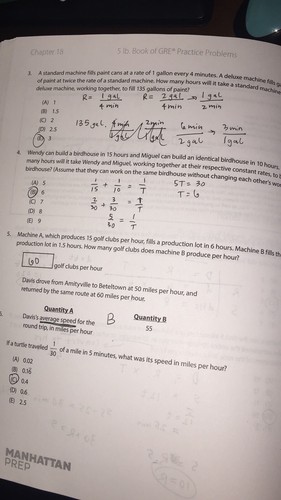 Chapter 18
5 lb. Book of GRE® Practice Problems
3. A standard machine fills paint cans at a rate of 1 gallon every 4 minutes. A deluxe machine fills
of paint at twice the rate of a standard machine. How many hours will it take a standard machine
deluxe machine, working together, to fill 135 gallons of paint?
R = 1 gal / 4 min R = 2 gal / 4 min → 1 gal / 2 min
(A) 1
(B) 1.5
(C) 2
(D) 2.5
(E) 3
135 gal.
6 min / 2 gal → 3 min / 1 gal
4. Wendy can build a birdhouse in 15 hours and Miguel can build an identical birdhouse in 10 hours.
many hours will it take Wendy and Miguel, working together at their respective constant rates, to b
birdhouse? (Assume that they can work on the same birdhouse without changing each other's wor
(A) 5
(B) 6
(C) 7
(D) 8
(E) 9
1/15 + 1/10 = 1/T
2/30 + 3/30 = 1/T
5/30 = 1/T
5T = 30
T = 6
5. Machine A, which produces 15 golf clubs per hour, fills a production lot in 6 hours. Machine B fills th
production lot in 1.5 hours. How many golf clubs does machine B produce per hour?
60
golf clubs per hour
Davis drove from Amityville to Beteltown at 50 miles per hour, and
returned by the same route at 60 miles per hour.
Quantity A
Quantity B
Davis's average speed for the
round trip, in miles per hour
B
55
If a turtle traveled 1/30 of a mile in 5 minutes, what was its speed in miles per hour?
(A) 0.02
(B) 0.16
(C) 0.4
(D) 0.6
(E) 2.5
MANHATTAN
PREP